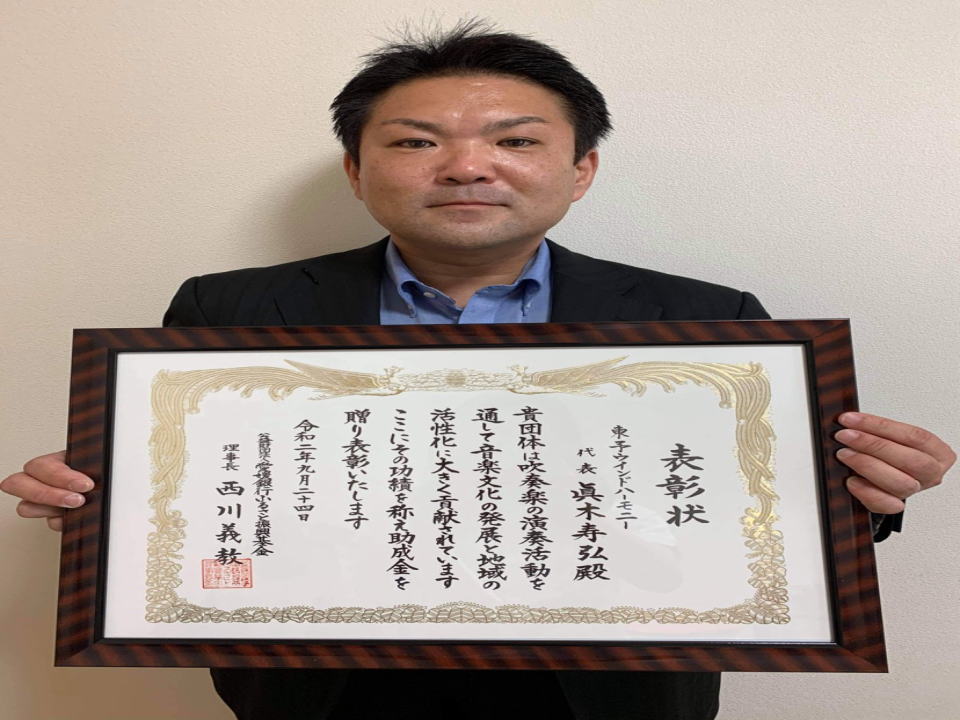 表彰状
東予ウインドハーモニー
代表 眞木寿弘殿
貴団体は吹奏楽の演奏活動を
通して音楽文化の発展と地域の
活性化に大きく貢献されています
ここにその功績を称え助成金を
贈り表彰いたします
令和二年九月二十四日
公益財団法人愛媛銀行ふるさと振興基金
理事長 西川義教